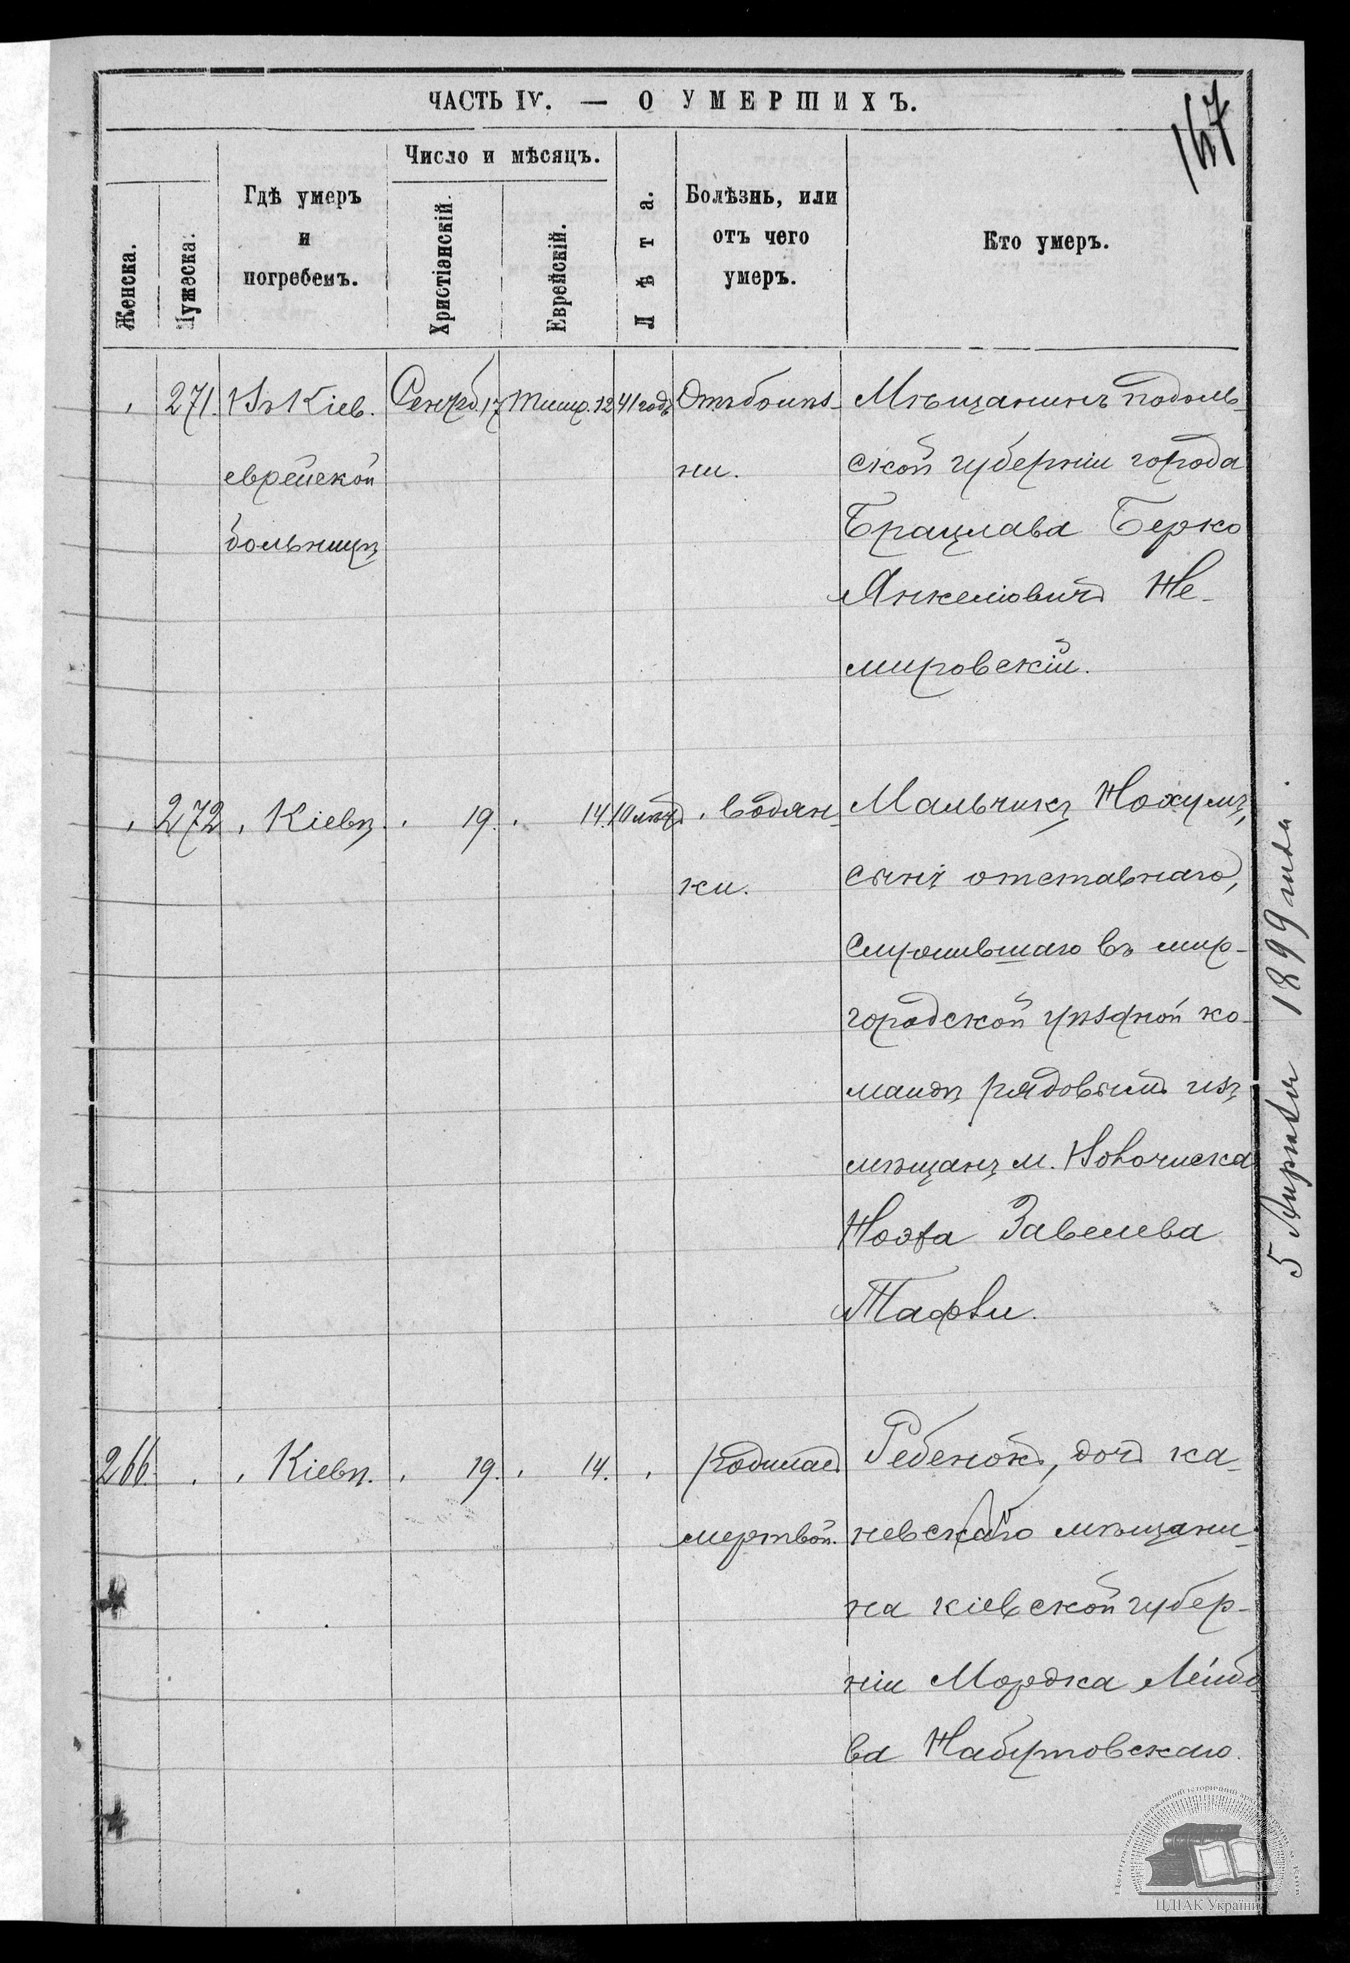 ЧАСТЬ IV. — О УМЕРШИХЪ.
167
Женска.
Мужеска.
Гдѣ умеръ
и
погребенъ.
Число и мѣсяцъ.
Христіанскій.
Еврейскій.
Лѣта.
Болѣзнь, или
отъ чего
умеръ.
Кто умеръ.
271. Въ Кіев. Сентяб. 17 Тишр. 12 41 годъ Отъ болѣз- Мѣщанинъ подоль-
еврейской ни. ской губерніи города
больницѣ Брацлава Берко
Янкелювичъ Не-
мировскій.
272. Кіевѣ 19. 14. 10 лѣтъ водян- Мальчикъ Нохумъ,
ки. сынъ отставнаго,
служившаго въ мир-
городской уѣздной ко-
мандѣ рядовымъ изъ
мѣщанъ м.
Завелева
266. Кіевѣ. 19. 14. родилась Ребенокъ, дочь ка-
мертвой. невскаго мѣщани-
на кіевской губер-
ніи Мордка Лейбо
ва Набутовскаго.
5 Апрѣля 1899 года.
ЦДІАК України